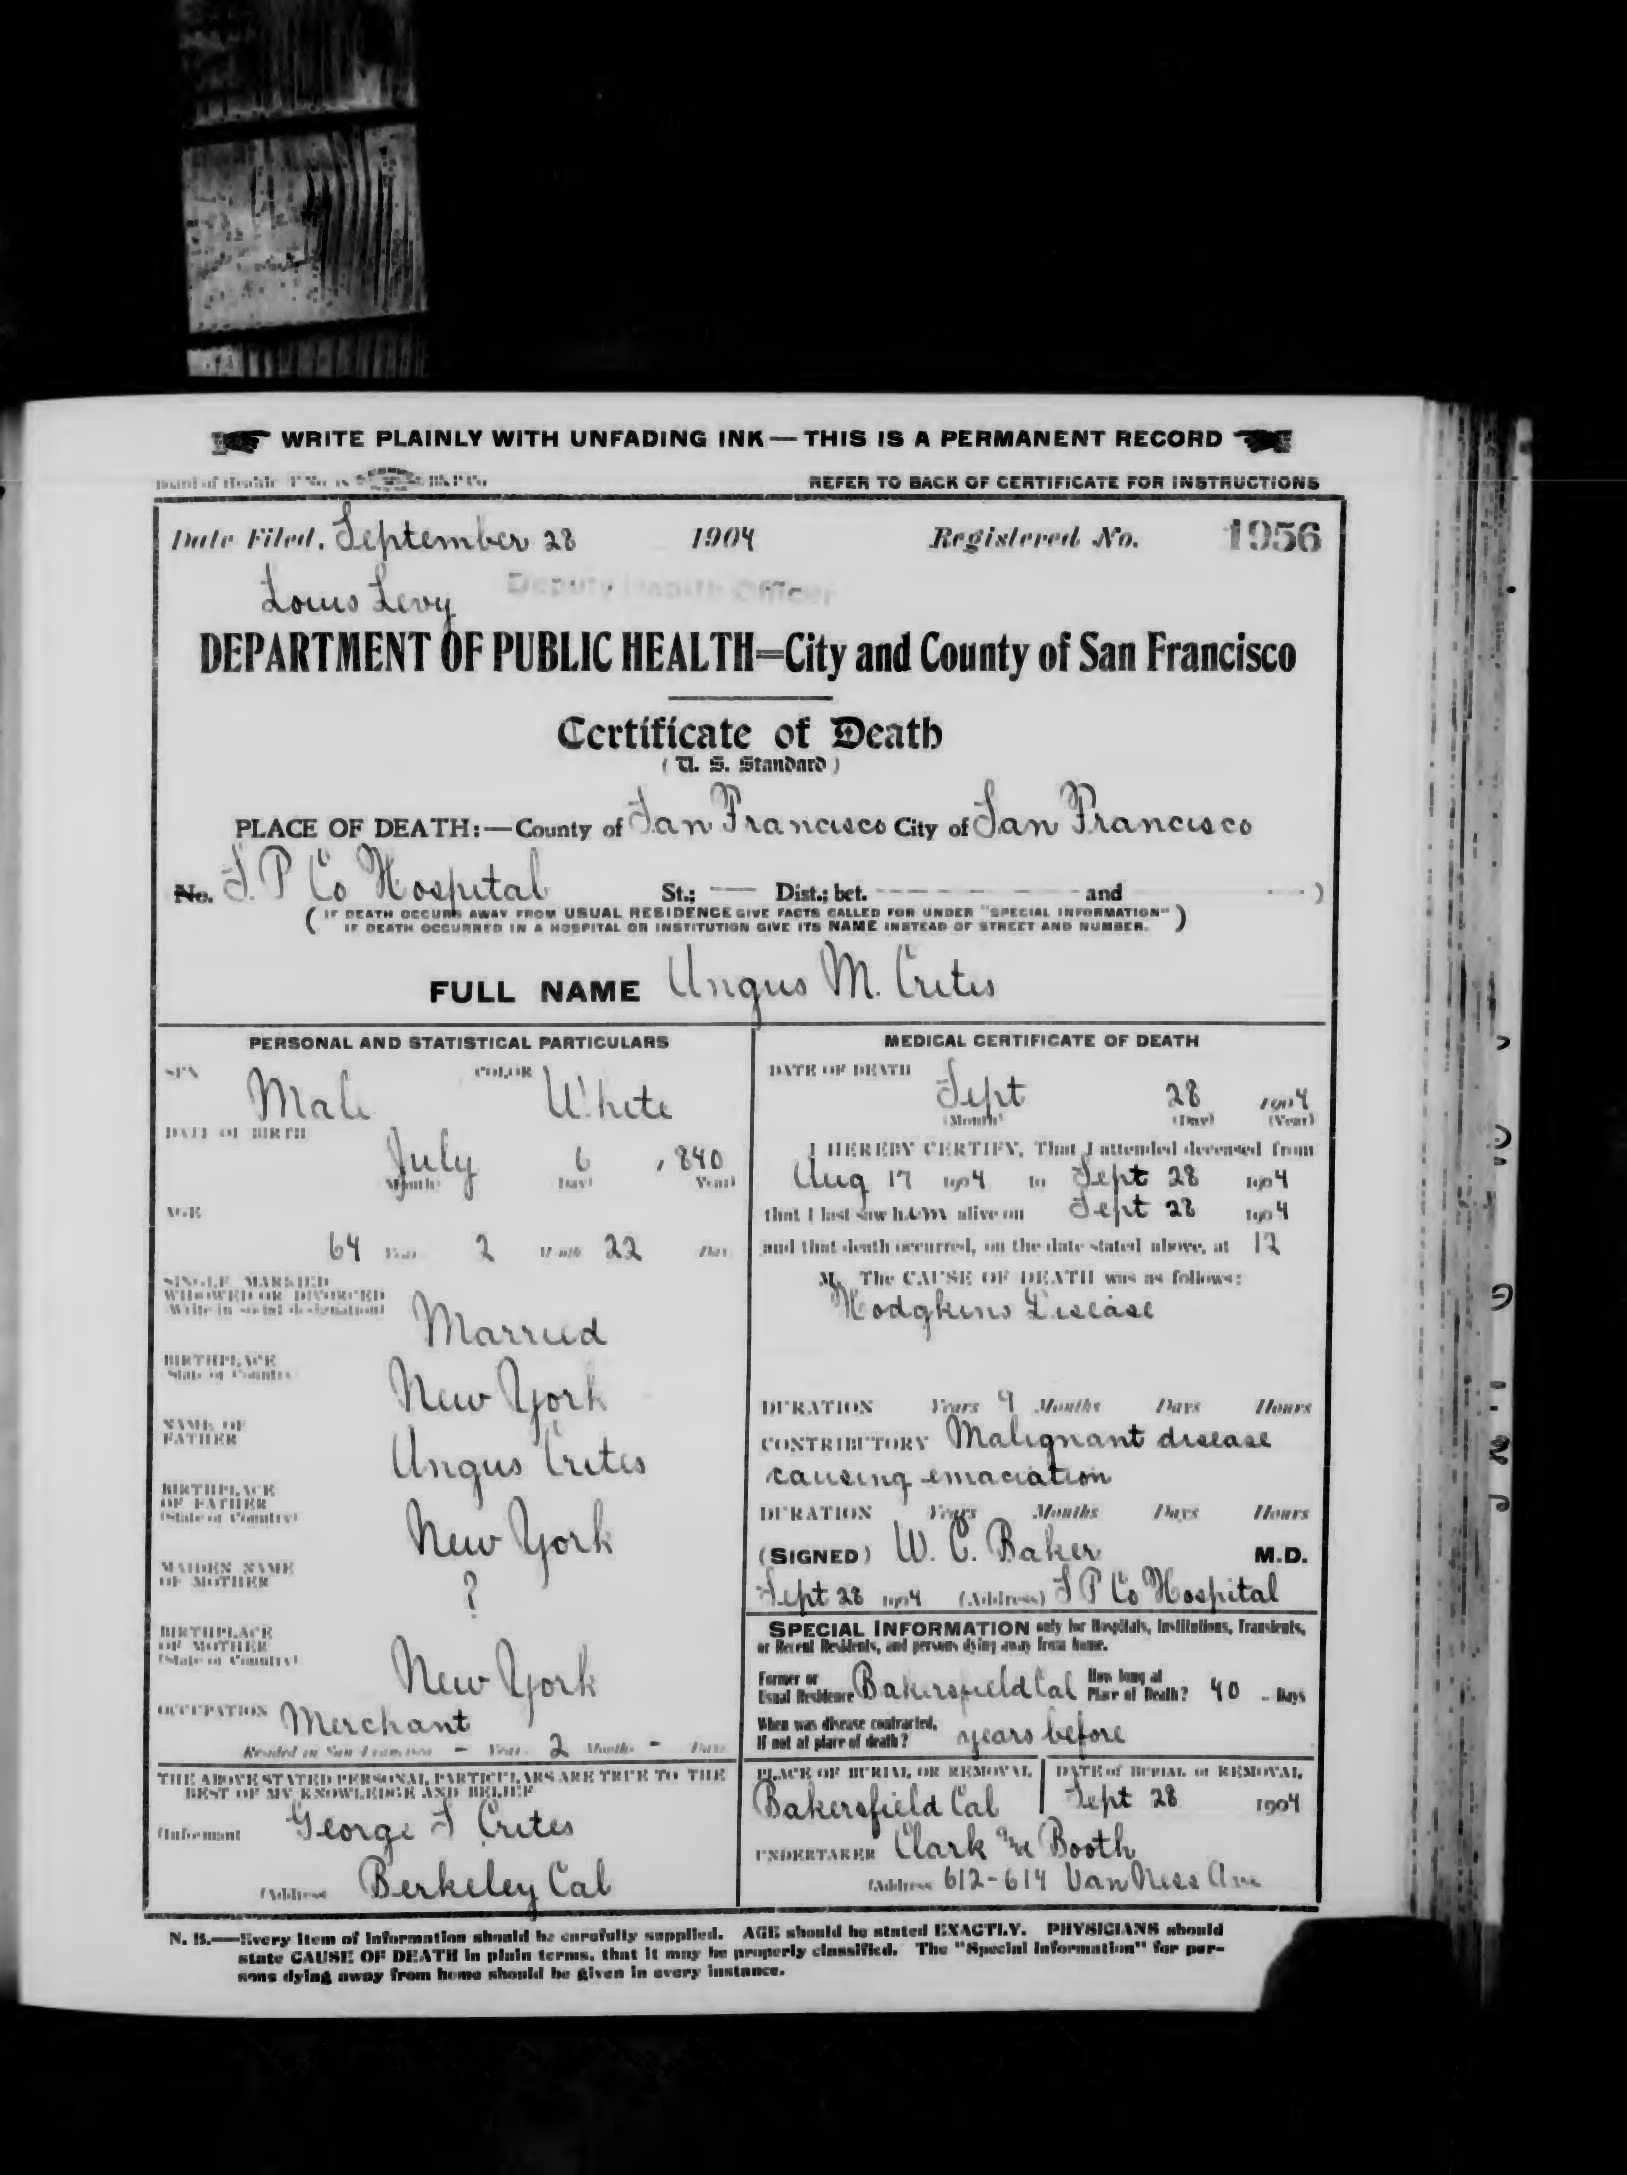 WRITE PLAINLY WITH UNFADING INK — THIS IS A PERMANENT RECORD
REFER TO BACK OF CERTIFICATE FOR INSTRUCTIONS
Date Filed, September 28 1904 Registered No. 1956
Louis Levy Deputy Health Officer
DEPARTMENT OF PUBLIC HEALTH=City and County of San Francisco
Certificate of Death
(U. S. Standard)
PLACE OF DEATH:—County of San Francisco City of San Francisco
No. S. P Co Hospital St.; — Dist.; bet. — and )
( IF DEATH OCCURS AWAY FROM USUAL RESIDENCE GIVE FACTS CALLED FOR UNDER "SPECIAL INFORMATION" )
IF DEATH OCCURRED IN A HOSPITAL OR INSTITUTION GIVE ITS NAME INSTEAD OF STREET AND NUMBER.
FULL NAME Angus M. Crites
PERSONAL AND STATISTICAL PARTICULARS
SEX Male COLOR White
DATE OF BIRTH
July 6 1840
(Month) (Day) (Year)
AGE
64 Years 2 Months 22 Days
SINGLE, MARRIED
WIDOWED OR DIVORCED
(Write in social designation)
Married
BIRTHPLACE
(State or Country)
New York
NAME OF
FATHER
Angus Crites
BIRTHPLACE
OF FATHER
(State or Country)
New York
MAIDEN NAME
OF MOTHER
?
BIRTHPLACE
OF MOTHER
(State or Country)
New York
OCCUPATION Merchant
Resided in San Francisco - Years 2 Months - Days
THE ABOVE STATED PERSONAL PARTICULARS ARE TRUE TO THE
BEST OF MY KNOWLEDGE AND BELIEF
(Informant George S Crites
(Address Berkeley Cal
MEDICAL CERTIFICATE OF DEATH
DATE OF DEATH
Sept 28 1904
(Month) (Day) (Year)
I HEREBY CERTIFY, That I attended deceased from
Aug 17 1904 to Sept 28 1904
that I last saw him alive on Sept 28 1904
and that death occurred, on the date stated above, at 12
M. The CAUSE OF DEATH was as follows:
Hodgkins Disease
DURATION Years 9 Months Days Hours
CONTRIBUTORY Malignant disease
causing emaciation
DURATION Years Months Days Hours
(SIGNED) W. C. Baker M.D.
Sept 28 1904 (Address) S P Co Hospital
SPECIAL INFORMATION only for Hospitals, Institutions, Transients,
or Recent Residents, and persons dying away from home.
Former or
Usual Residence Bakersfield Cal How long at
Place of Death? 40 - Days
When was disease contracted,
If not at place of death? years before
PLACE OF BURIAL OR REMOVAL
Bakersfield Cal
DATE of BURIAL or REMOVAL
Sept 28 1904
UNDERTAKER Clark & Booth
(Address 612-614 Van Ness Ave
N. B.—Every item of information should be carefully supplied. AGE should be stated EXACTLY. PHYSICIANS should
state CAUSE OF DEATH in plain terms, that it may be properly classified. The "Special Information" for per-
sons dying away from home should be given in every instance.